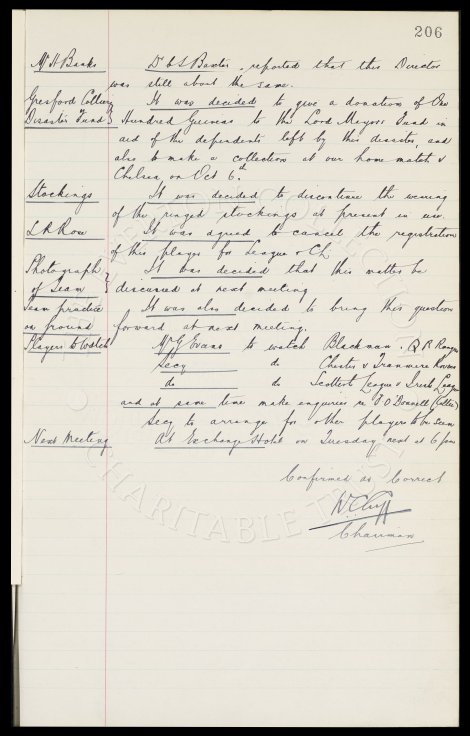 206
Mr H Banks Dr C S Baxter reported that this Director
was still about the same.
Gresford Colliery It was decided to give a donation of One
Disaster Fund } Hundred Guineas to the Lord Mayors Fund in
aid of the dependents left by this disaster, and
also to make a collection at our home match v
Chelsea on Oct 6th
Stockings It was decided to discontinue the wearing
of the ringed stockings at present in use.
L R Row It was agreed to cancel the registration
of this player for League & Ch
Photograph It was decided that this matter be
of Team } discussed at next meeting
Team practice It was also decided to bring this question
on ground forward at next meeting.
Players to Watch Mr G Evans to watch Blackman. Q R Rangers
Secy do Chester v Tranmere Rovers
do do Scottish League v Irish League
and at same time make enquiries re F O'Donnell (Celtic)
Secy to arrange for other players to be seen
Next Meeting At Exchange Hotel on Tuesday next at 6 pm
Confirmed as Correct
W C Cuff
Chairman
CHARITABLE